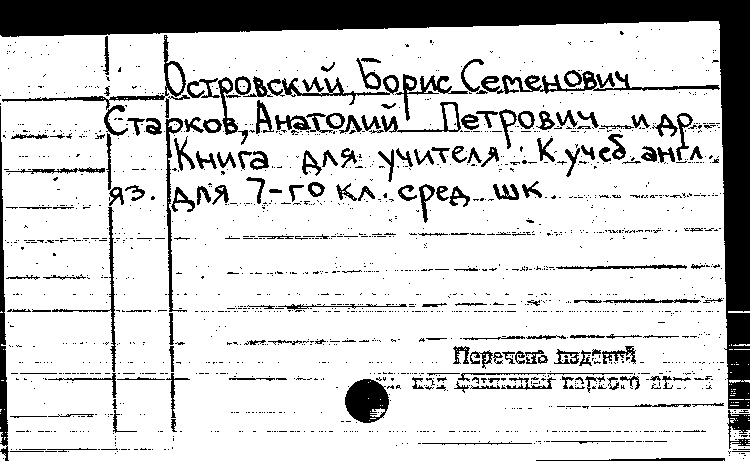 Островский, Борис Семенович
Старков, Анатолий Петрович и др
Книга для учителя : К учеб англ.
яз. для 7-го кл. сред шк.
Перечень изданий
под фамилией первого автора